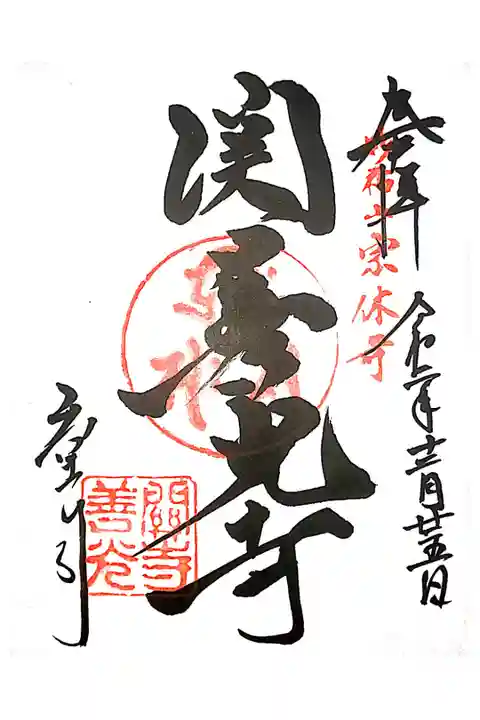 奉拝
妙祐山宗休寺
令和二年十二月廿五日
関善光寺
關寺
善光